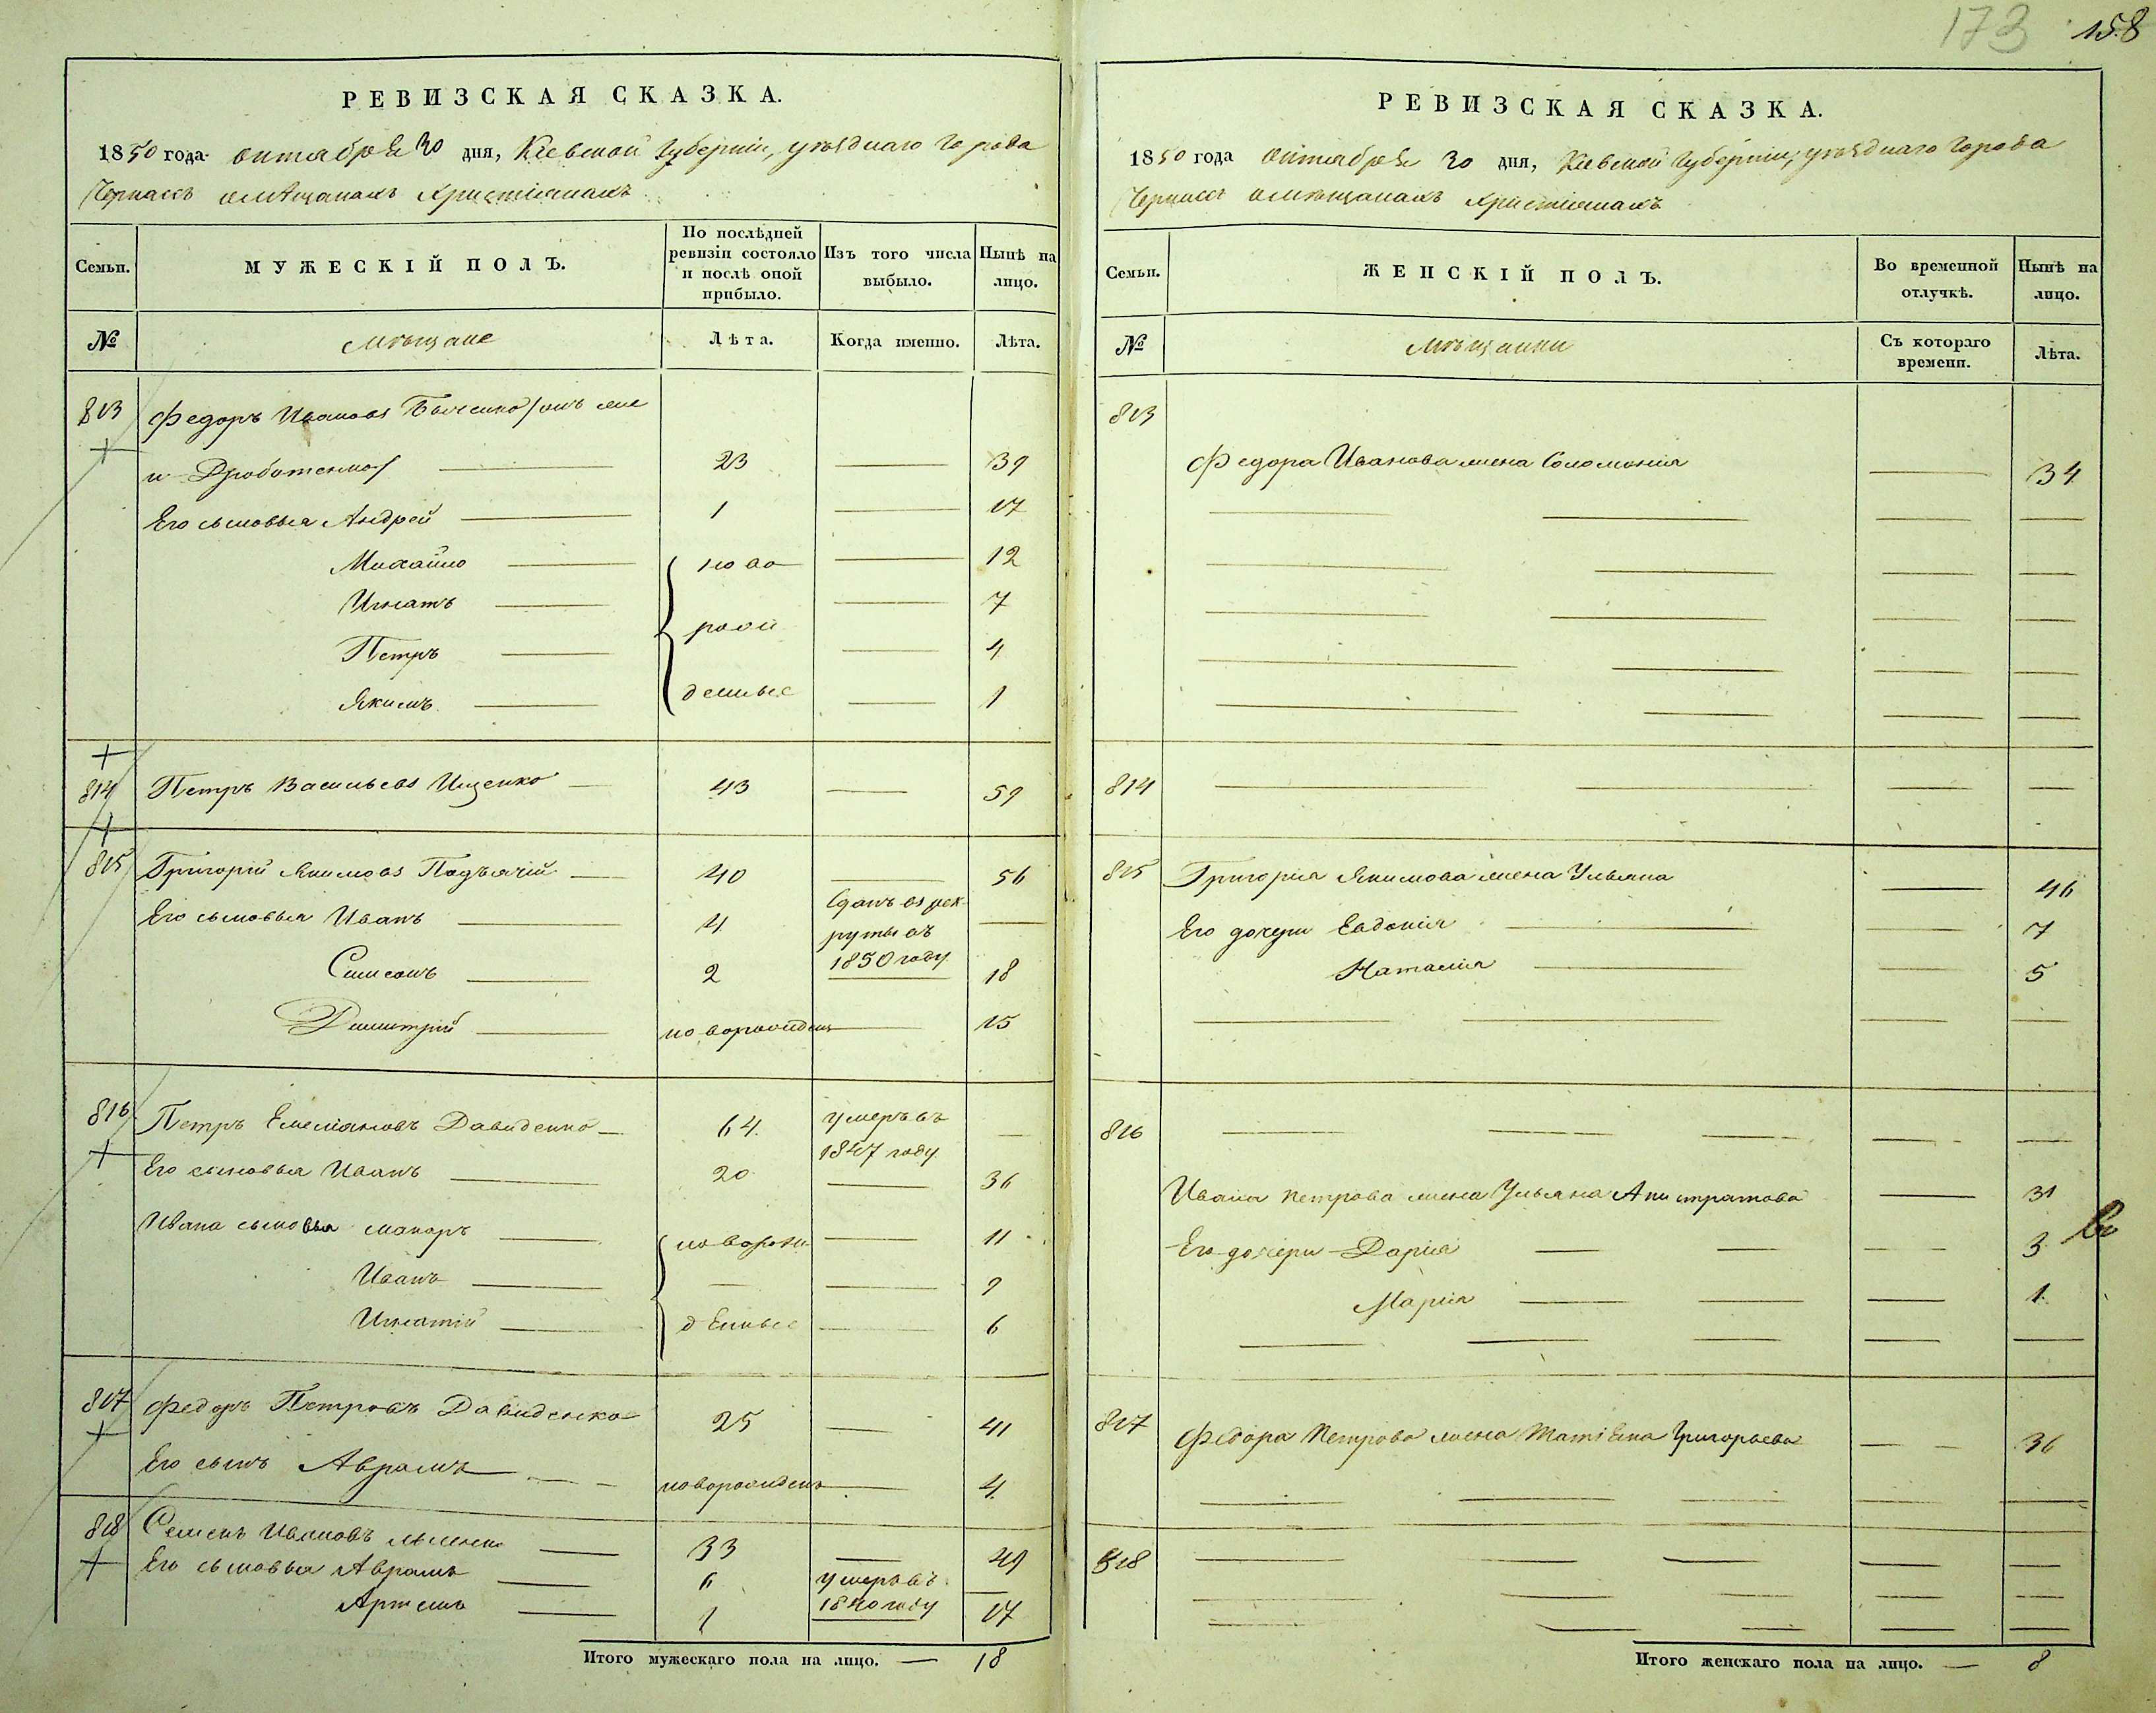 173 158
РЕВИЗСКАЯ СКАЗКА.
1850 года октября 30 дня, Кіевской Губерніи, уѣзднаго Города
Черкасъ о мѣщанахъ Христіянахъ
Семьи. МУЖЕСКІЙ ПОЛЪ. По послѣдней ревизіи состояло и послѣ оной прибыло. Изъ того числа выбыло. Нынѣ на лицо.
№ мѣщане Лѣта. Когда именно. Лѣта.
813 Федоръ Ивановъ
и Дроботенко/ 23 — 39
Его сыновья Андрей 1 — 17
Михайло ново — 12
Игнатъ — 7
Петръ рожд — 4
Якимъ денные — 1
814 Петръ Васильевъ Ищенко 43 — 59
815 Григорій Якимовъ Подъячій 40 — 56
Его сыновья Иванъ 4 Сданъ въ рекруты въ 1850 году —
Симеонъ 2 — 18
Димитрій новорожденъ — 15
816 Петръ Емеліяновъ Давиденко 64 умеръ въ 1847 году —
Его сыновья Иванъ 20 — 36
Ивана сыновья Макаръ новорож — 11
Иванъ — — 9
Игнатій денные — 6
817 Федоръ Петровъ Давиденко 25 — 41
Его сынъ Аврамъ новорожденъ — 4
818 Семенъ Ивановъ 33 — 49
Его сыновья Аврамъ 6 умеръ въ 1840 году —
Артемъ 1 17
Итого мужескаго пола на лицо. — 18
РЕВИЗСКАЯ СКАЗКА.
1850 года октября 30 дня, Кіевской Губерніи, уѣзднаго Города
Черкасъ о мѣщанахъ Христіянахъ
Семьи. ЖЕНСКІЙ ПОЛЪ. Во временной отлучкѣ. Нынѣ на лицо.
№ Мѣщанки Съ котораго времени. Лѣта.
813
Федора Иванова жена Соломонія — 34
814
815 Григорія Якимова жена Ульяна — 46
Его дочери Евдокія — 7
Наталія — 5
816
Ивана Петрова жена Ульяна Апистратова — 31
Его дочери Дарія — 3
Марія — 1
817 Федора Петрова жена Татіяна Григорьева — 36
818
Итого женскаго пола на лицо. — 8